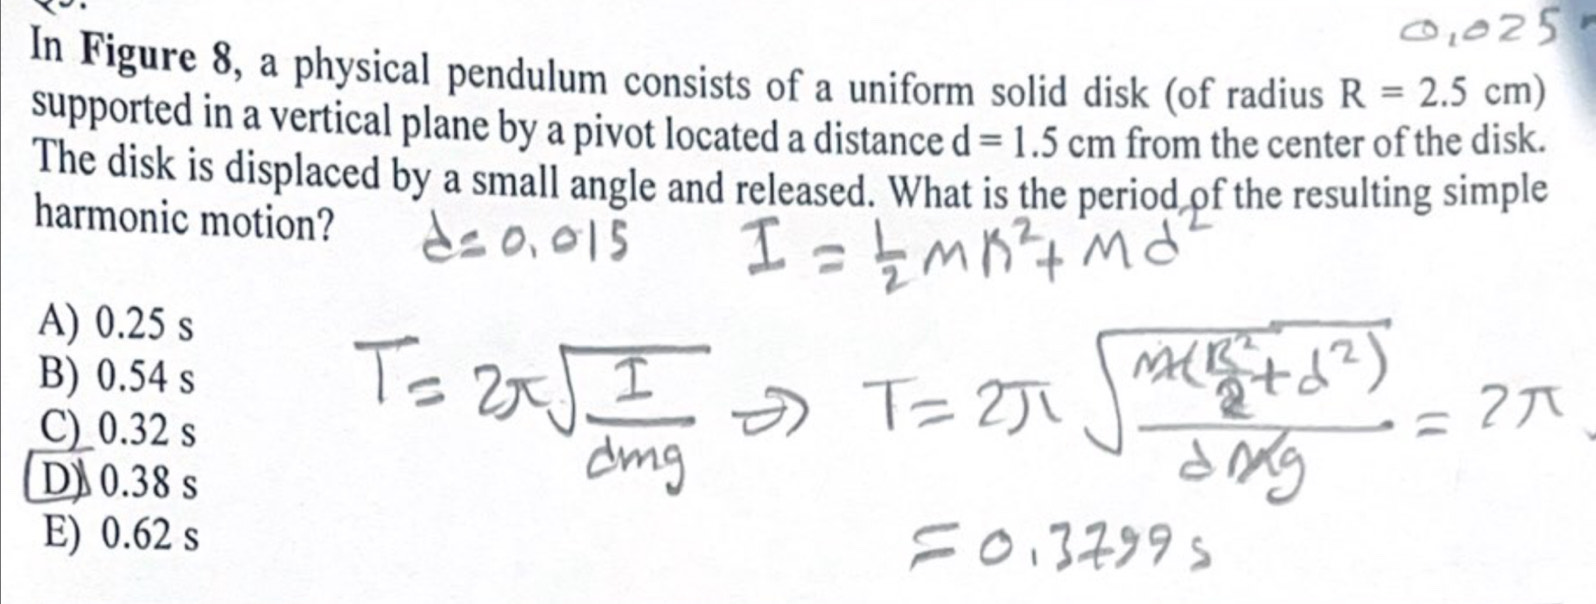 0,025
In Figure 8, a physical pendulum consists of a uniform solid disk (of radius R = 2.5 cm)
supported in a vertical plane by a pivot located a distance d = 1.5 cm from the center of the disk.
The disk is displaced by a small angle and released. What is the period of the resulting simple
harmonic motion?
d=0.015 I = ½ MR² + Md²
A) 0.25 s
B) 0.54 s
C) 0.32 s
D) 0.38 s
E) 0.62 s
T = 2π√(I/dmg) ⇒ T = 2π√(M(R²/2 + d²)/dMg) = 2π
= 0.3799 s